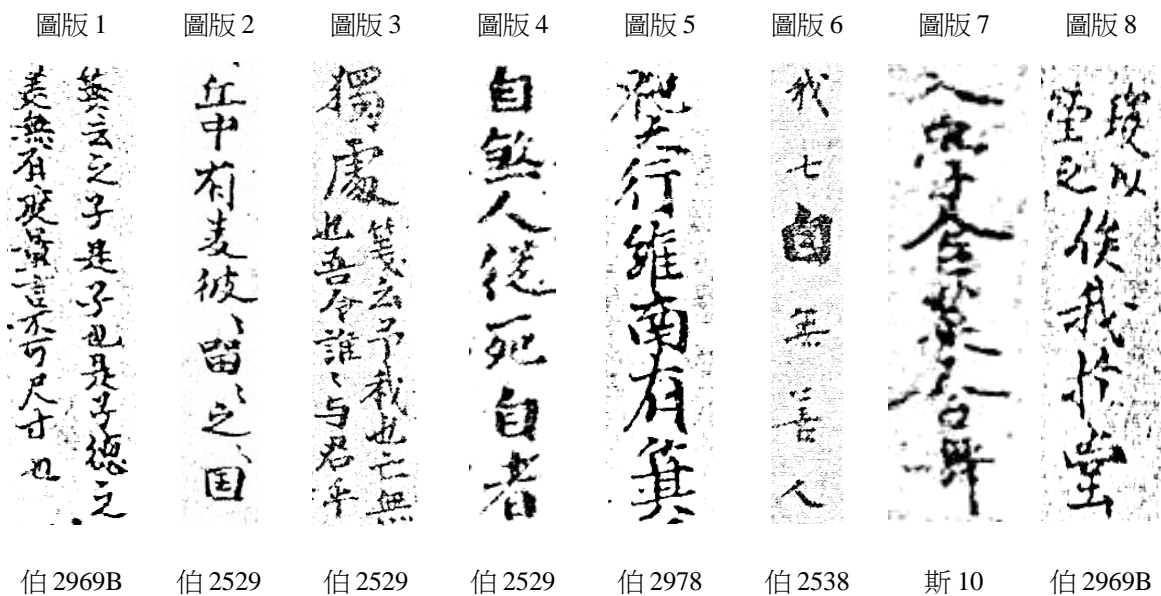 圖版 1 圖版 2 圖版 3 圖版 4 圖版 5 圖版 6 圖版 7 圖版 8
箋云之子是子也是子德之
美無有度量言不可尺寸也
丘中有麦彼、留、之、国
獨處
箋云予我也亡無
也吾今誰、与君乎
自煞人從死自者
天行維南有箕
我七自無善人
俟我於堂
伯 2969B 伯 2529 伯 2529 伯 2529 伯 2978 伯 2538 斯 10 伯 2969B